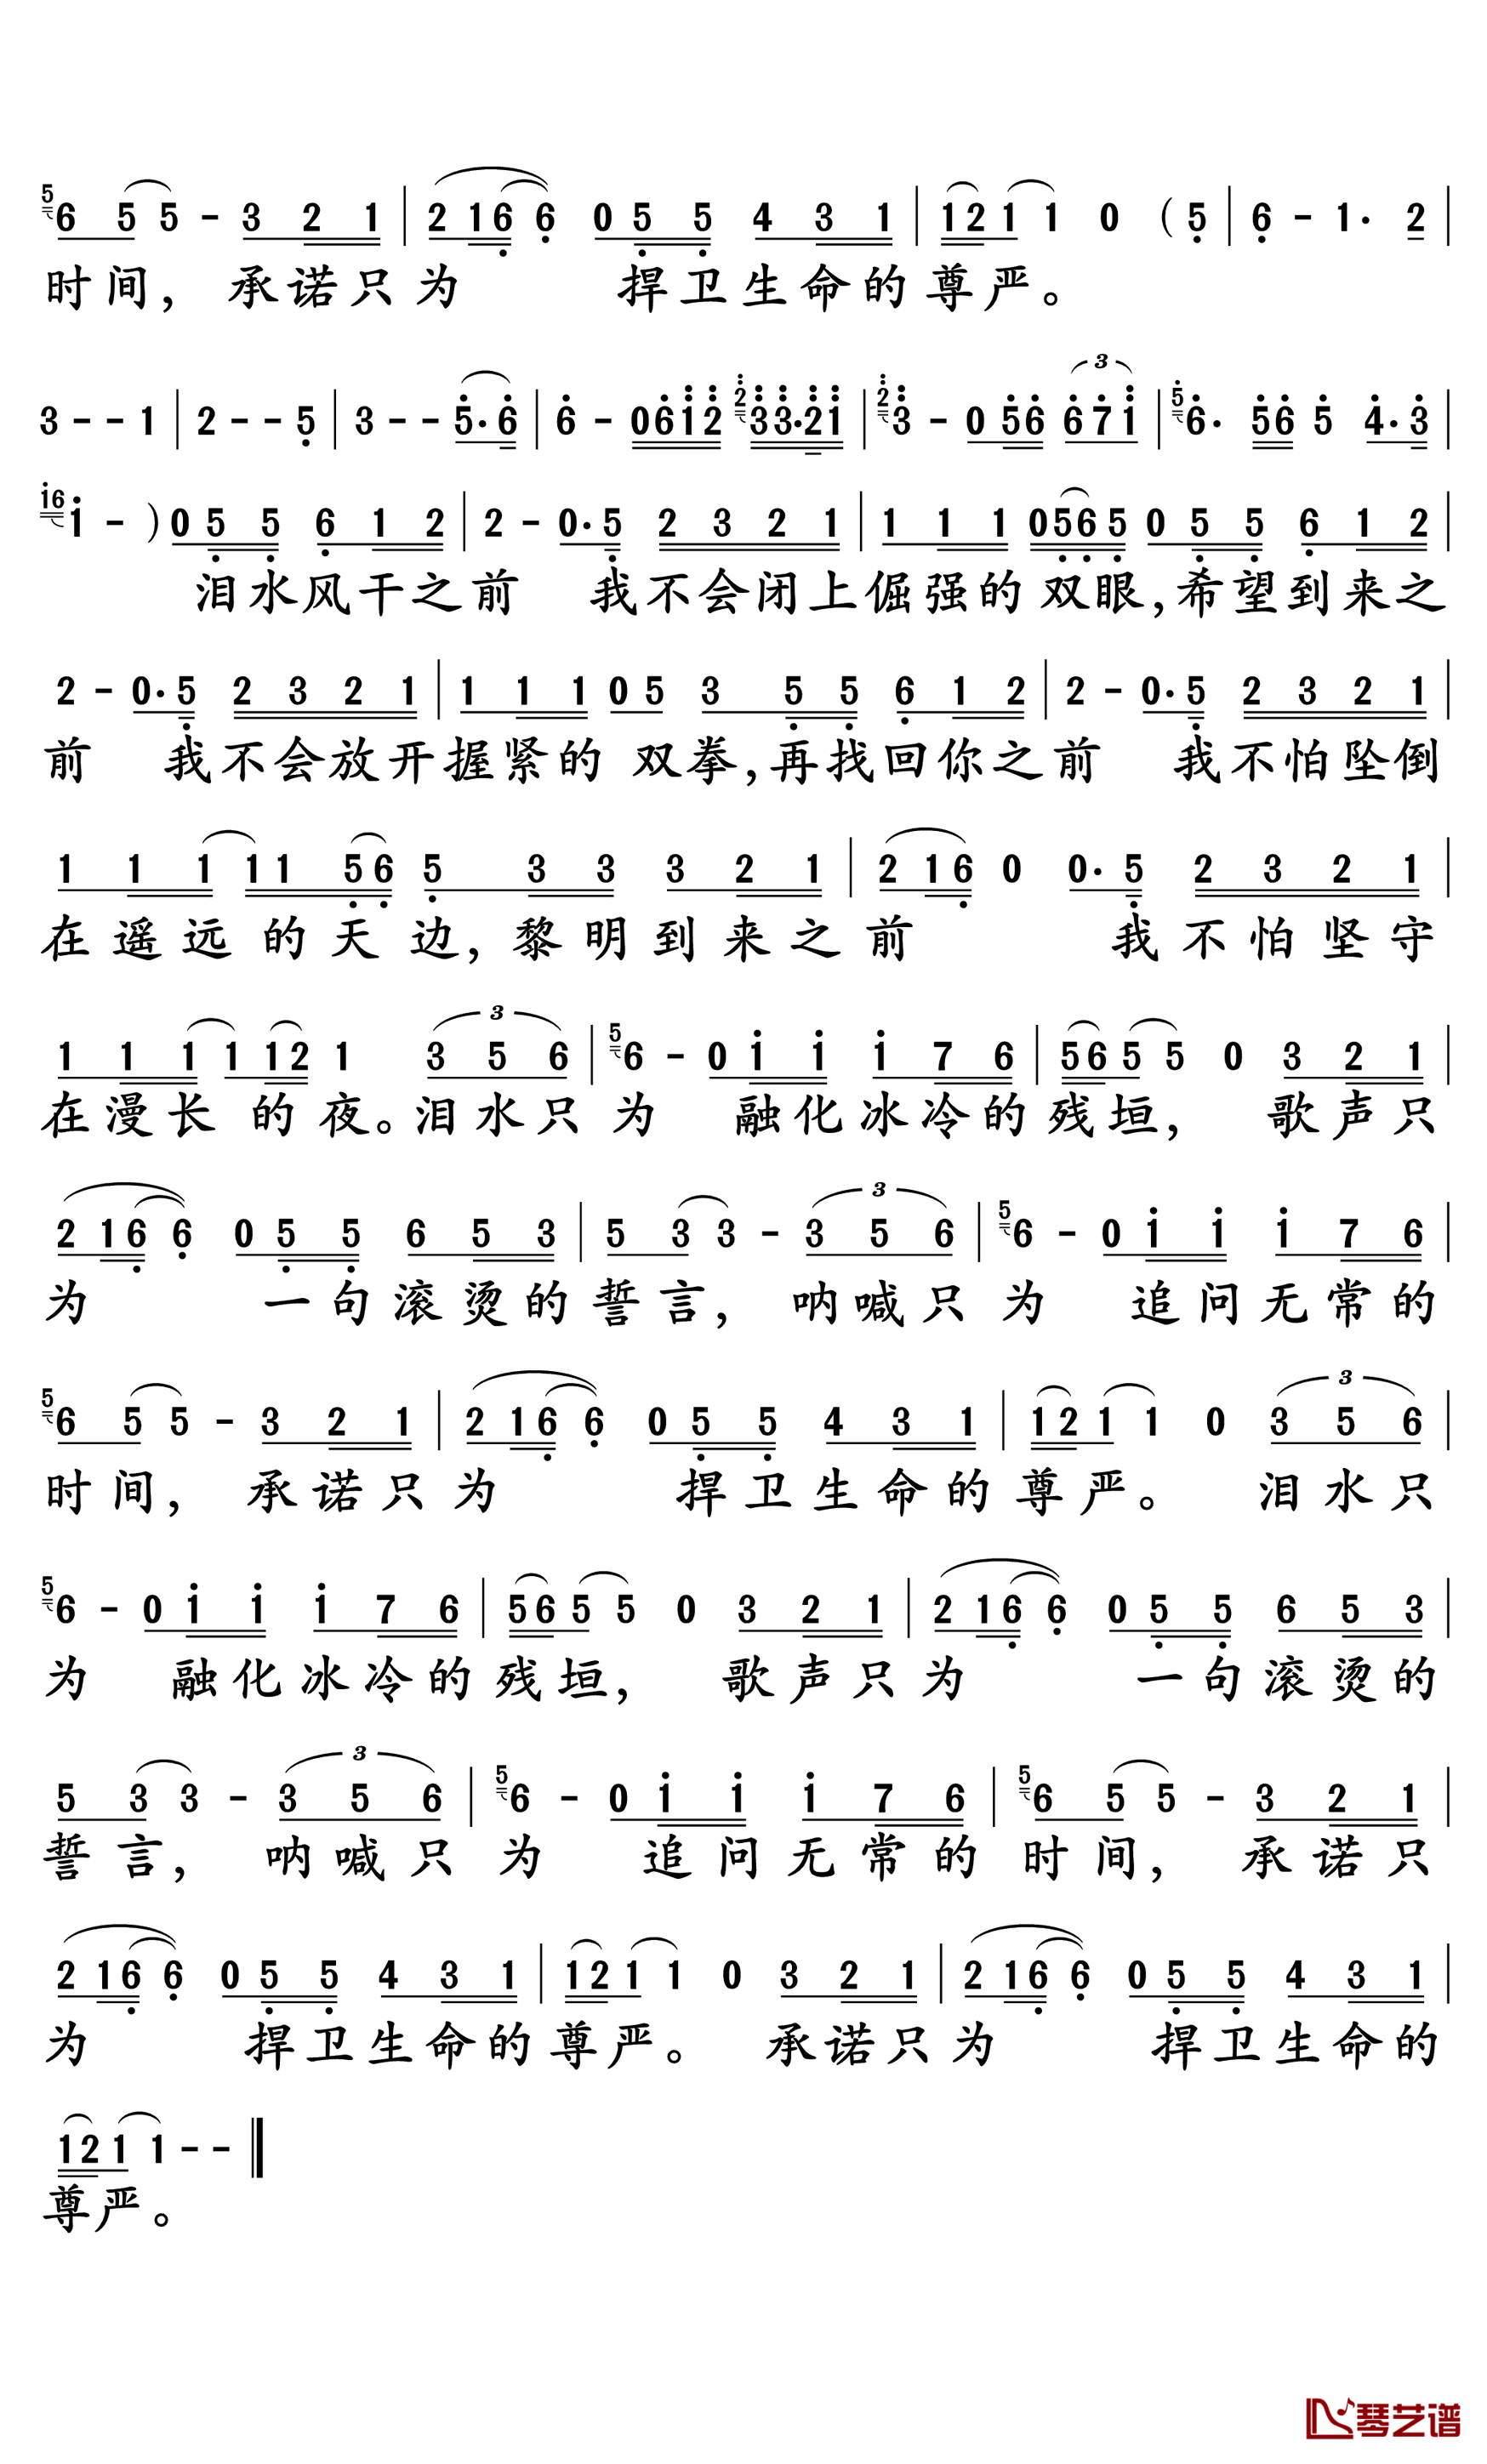 5 6 5 5 - 3 2 1 | 2 1 6 6 0 5 5 4 3 1 | 1 2 1 1 0 ( 5 | 6 - 1 · 2 |
时间，承诺只为 捍卫生命的尊严。
3 - - 1 | 2 - - 5 | 3 - - 5 · 6 | 6 - 0 6 1 2 2 3 3 · 2 1 | 2 3 - 0 5 6 3 6 7 1 | 5 6 · 5 6 5 4 · 3 |
1 6 1 - ) 0 5 5 6 1 2 | 2 - 0 · 5 2 3 2 1 | 1 1 1 0 5 6 5 0 5 5 6 1 2 |
泪水风干之前 我不会闭上倔强的双眼，希望到来之
2 - 0 · 5 2 3 2 1 | 1 1 1 0 5 3 5 5 6 1 2 | 2 - 0 · 5 2 3 2 1 |
前 我不会放开握紧的双拳，再找回你之前 我不怕坠倒
1 1 1 1 1 5 6 5 3 3 3 2 1 | 2 1 6 0 0 · 5 2 3 2 1 |
在遥远的天边，黎明到来之前 我不怕坚守
1 1 1 1 1 2 1 3 3 5 6 | 5 6 - 0 1 1 1 7 6 | 5 6 5 5 0 3 2 1 |
在漫长的夜。泪水只为 融化冰冷的残垣，歌声只
2 1 6 6 0 5 5 6 5 3 | 5 3 3 - 3 3 5 6 | 5 6 - 0 1 1 1 7 6 |
为 一句滚烫的誓言，呐喊只为 追问无常的
5 6 5 5 - 3 2 1 | 2 1 6 6 0 5 5 4 3 1 | 1 2 1 1 0 3 3 5 6 |
时间，承诺只为 捍卫生命的尊严。泪水只
5 6 - 0 1 1 1 7 6 | 5 6 5 5 0 3 2 1 | 2 1 6 6 0 5 5 6 5 3 |
为 融化冰冷的残垣，歌声只为 一句滚烫的
5 3 3 - 3 3 5 6 | 5 6 - 0 1 1 1 7 6 | 5 6 5 5 - 3 2 1 |
誓言，呐喊只为 追问无常的时间，承诺只
2 1 6 6 0 5 5 4 3 1 | 1 2 1 1 0 3 2 1 | 2 1 6 6 0 5 5 4 3 1 |
为 捍卫生命的尊严。承诺只为 捍卫生命的
1 2 1 1 - - ‖
尊严。
琴艺谱